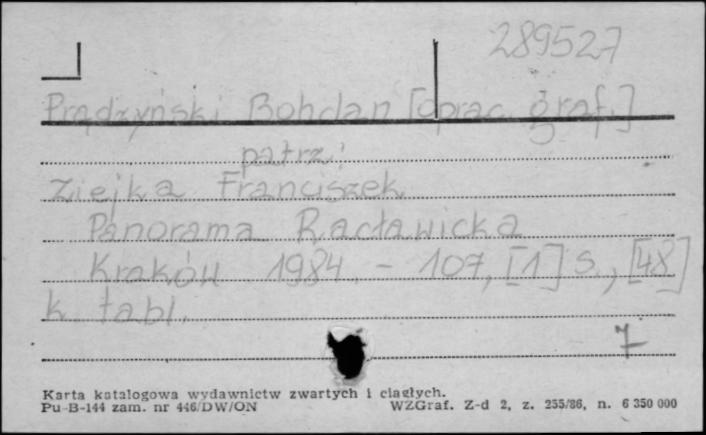 289527
Prądzyński Bohdan [oprac. graf.]
patrz:
Ziejka Franciszek
Panorama Racławicka
Kraków 1984. - 107, [1] s., [48]
k. tabl.
7
Karta katalogowa wydawnictw zwartych i ciągłych.
Pu-B-144 zam. nr 446/DW/ON WZGraf. Z-d 2, z. 255/86, n. 6 350 000